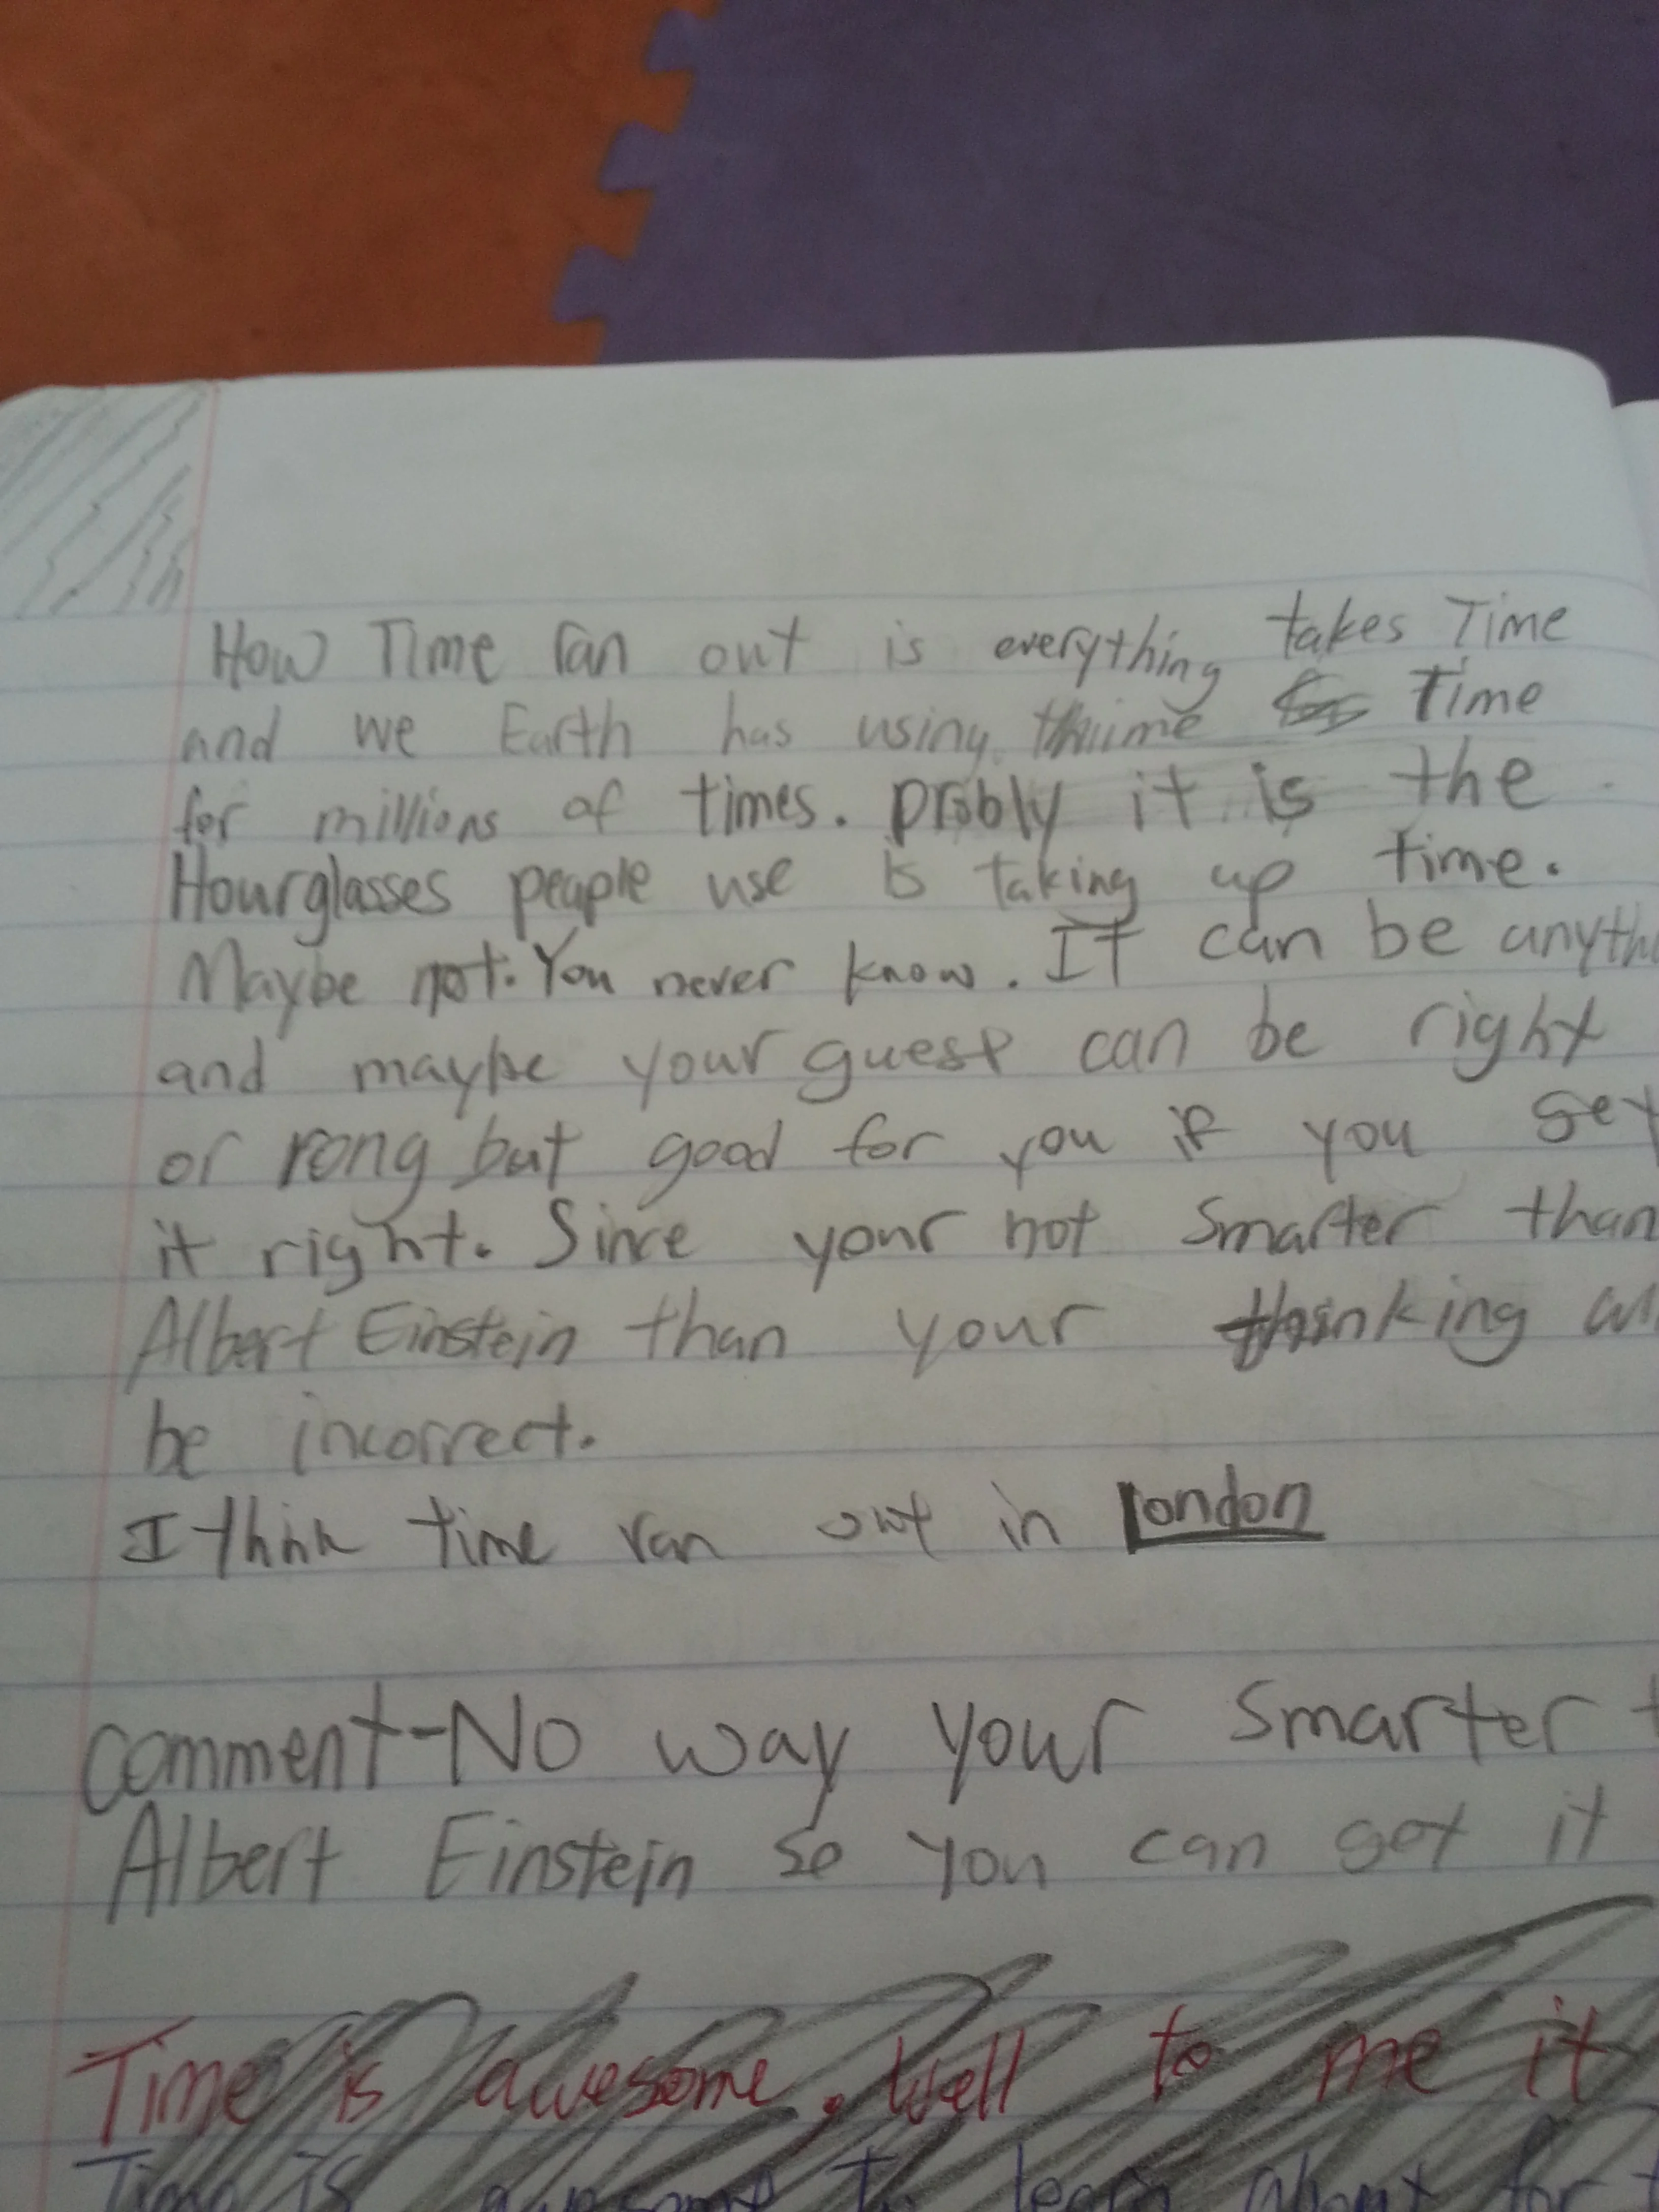 How Time ran out is everything takes Time
and we Earth has using thiime Time
for millions of times. probly it is the
Hourglasses people use is taking up time.
Maybe not. You never know. It can be anyth
and maybe your guest can be right
or rong but good for you if you get
it right. Since your not smarter than
Albert Einstein than your thinking
be incorrect.
I think time ran out in London
comment-No way your smarter t
Albert Einstein so you can get it
Time is awesome, well to me it
Time is awesome to learn about for